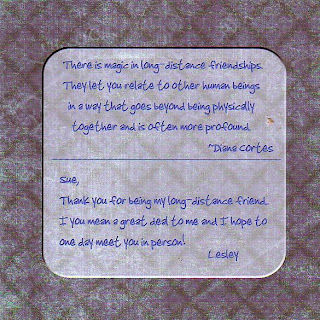 There is magic in long-distance friendships.
They let you relate to other human beings
in a way that goes beyond being physically
together and is often more profound.
~Diana Cortes
Sue,
Thank you for being my long-distance friend.
I you mean a great deal to me and I hope to
one day meet you in person!
Lesley